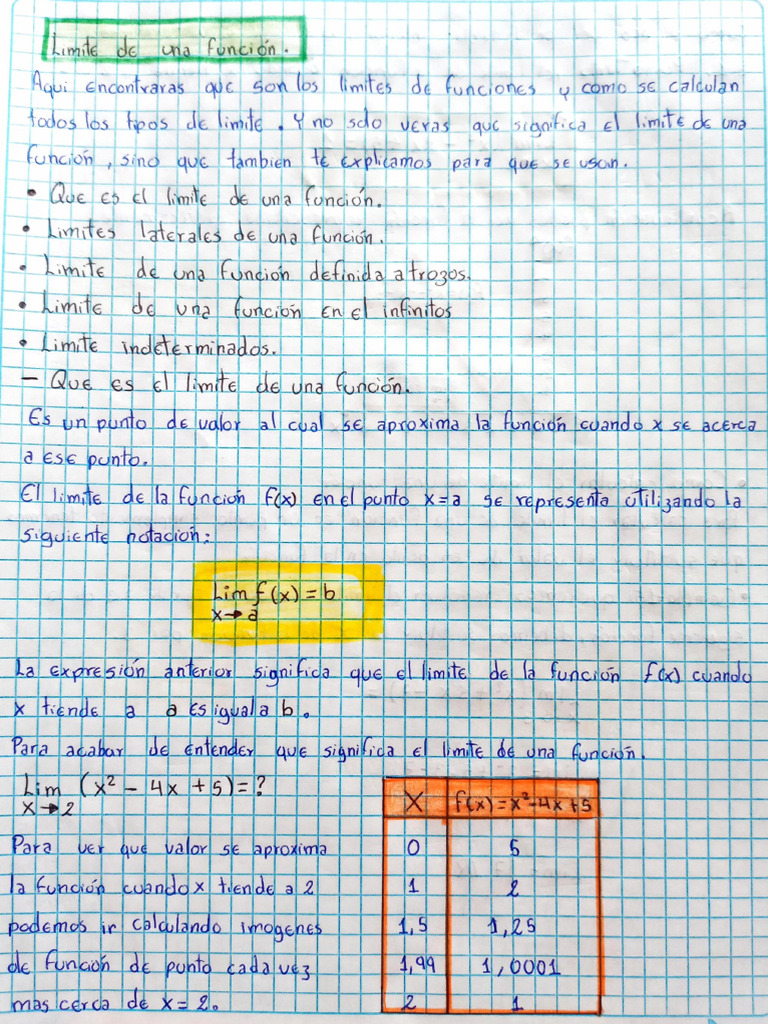 Limite de una función.
Aqui encontraras que son los limites de funciones y como se calculan
todos los tipos de limite. Y no solo veras que significa el limite de una
función, sino que tambien te explicamos para que se usan.
• Que es el limite de una función.
• Limites laterales de una función.
• Limite de una función definida a trozos.
• Limite de una función en el infinitos
• Limite indeterminados.
– Que es el limite de una función.
Es un punto de valor al cual se aproxima la función cuando x se acerca
a ese punto.
El limite de la función f(x) en el punto x=a se representa utilizando la
siguiente notación:
Lim f(x) = b
x→a
La expresión anterior significa que el limite de la función f(x) cuando
x tiende a a es igual a b.
Para acabar de entender que significa el limite de una función.
Lim (x² - 4x + 5) = ?
x→2
Para ver que valor se aproxima
la función cuando x tiende a 2
podemos ir calculando imogenes
de función de punto cada vez
mas cerca de x = 2.
X f(x) = x²-4x+5
0 5
1 2
1,5 1,25
1,99 1,0001
2 1